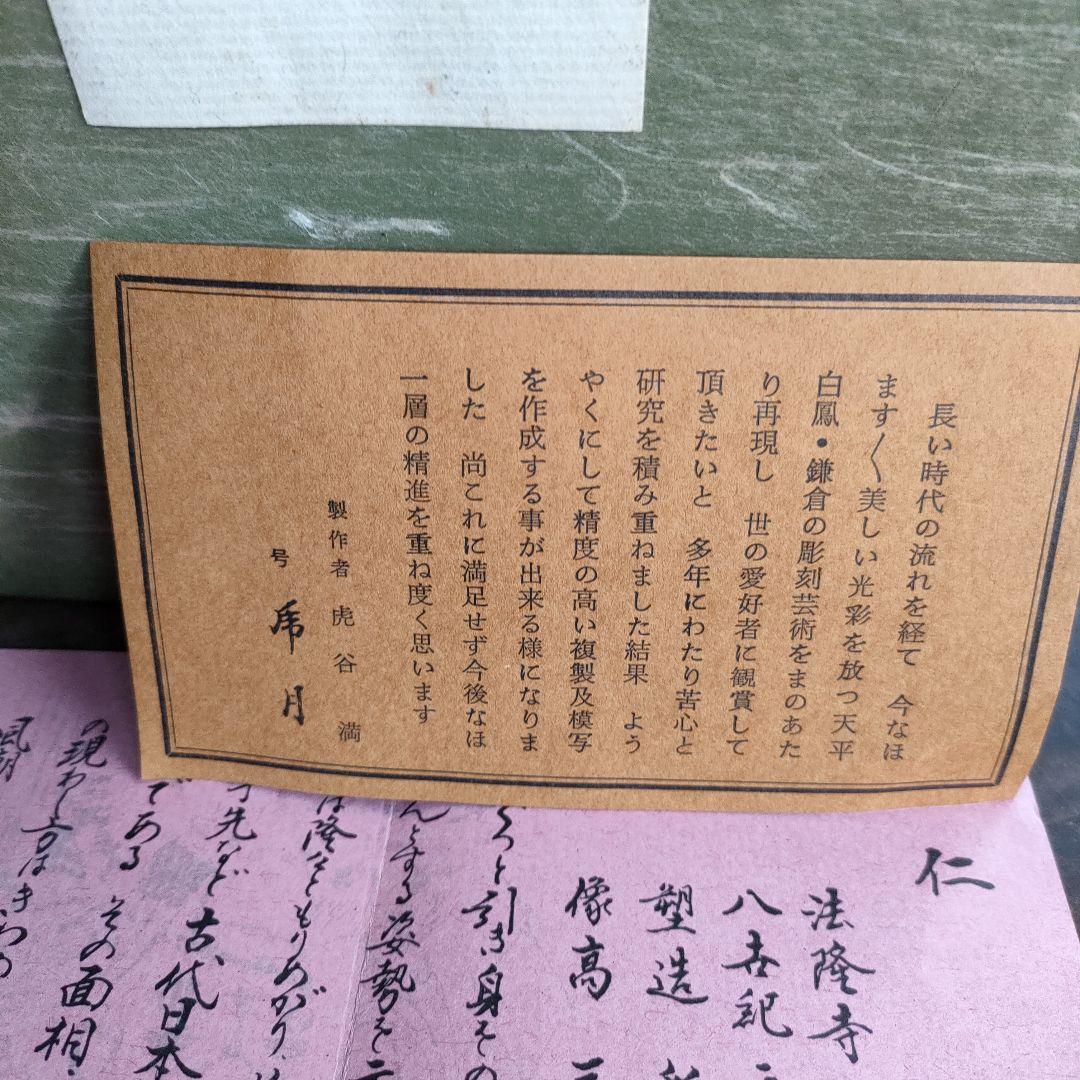 長い時代の流れを経て　今なほ
ます〳〵美しい光彩を放つ天平
白鳳・鎌倉の彫刻芸術をまのあた
り再現し　世の愛好者に観賞して
頂きたいと　多年にわたり苦心と
研究を積み重ねました結果　よう
やくにして精度の高い複製及模写
を作成する事が出来る様になりま
した　尚これに満足せず今後なほ
一層の精進を重ね度く思います
製作者　虎谷　満
号　月
仁
法隆寺
八世紀
塑造
像高
と引き身その
んとする姿勢を
は隆々ともりあがり、
先など古代日本
である　その面相
の現わし方はき